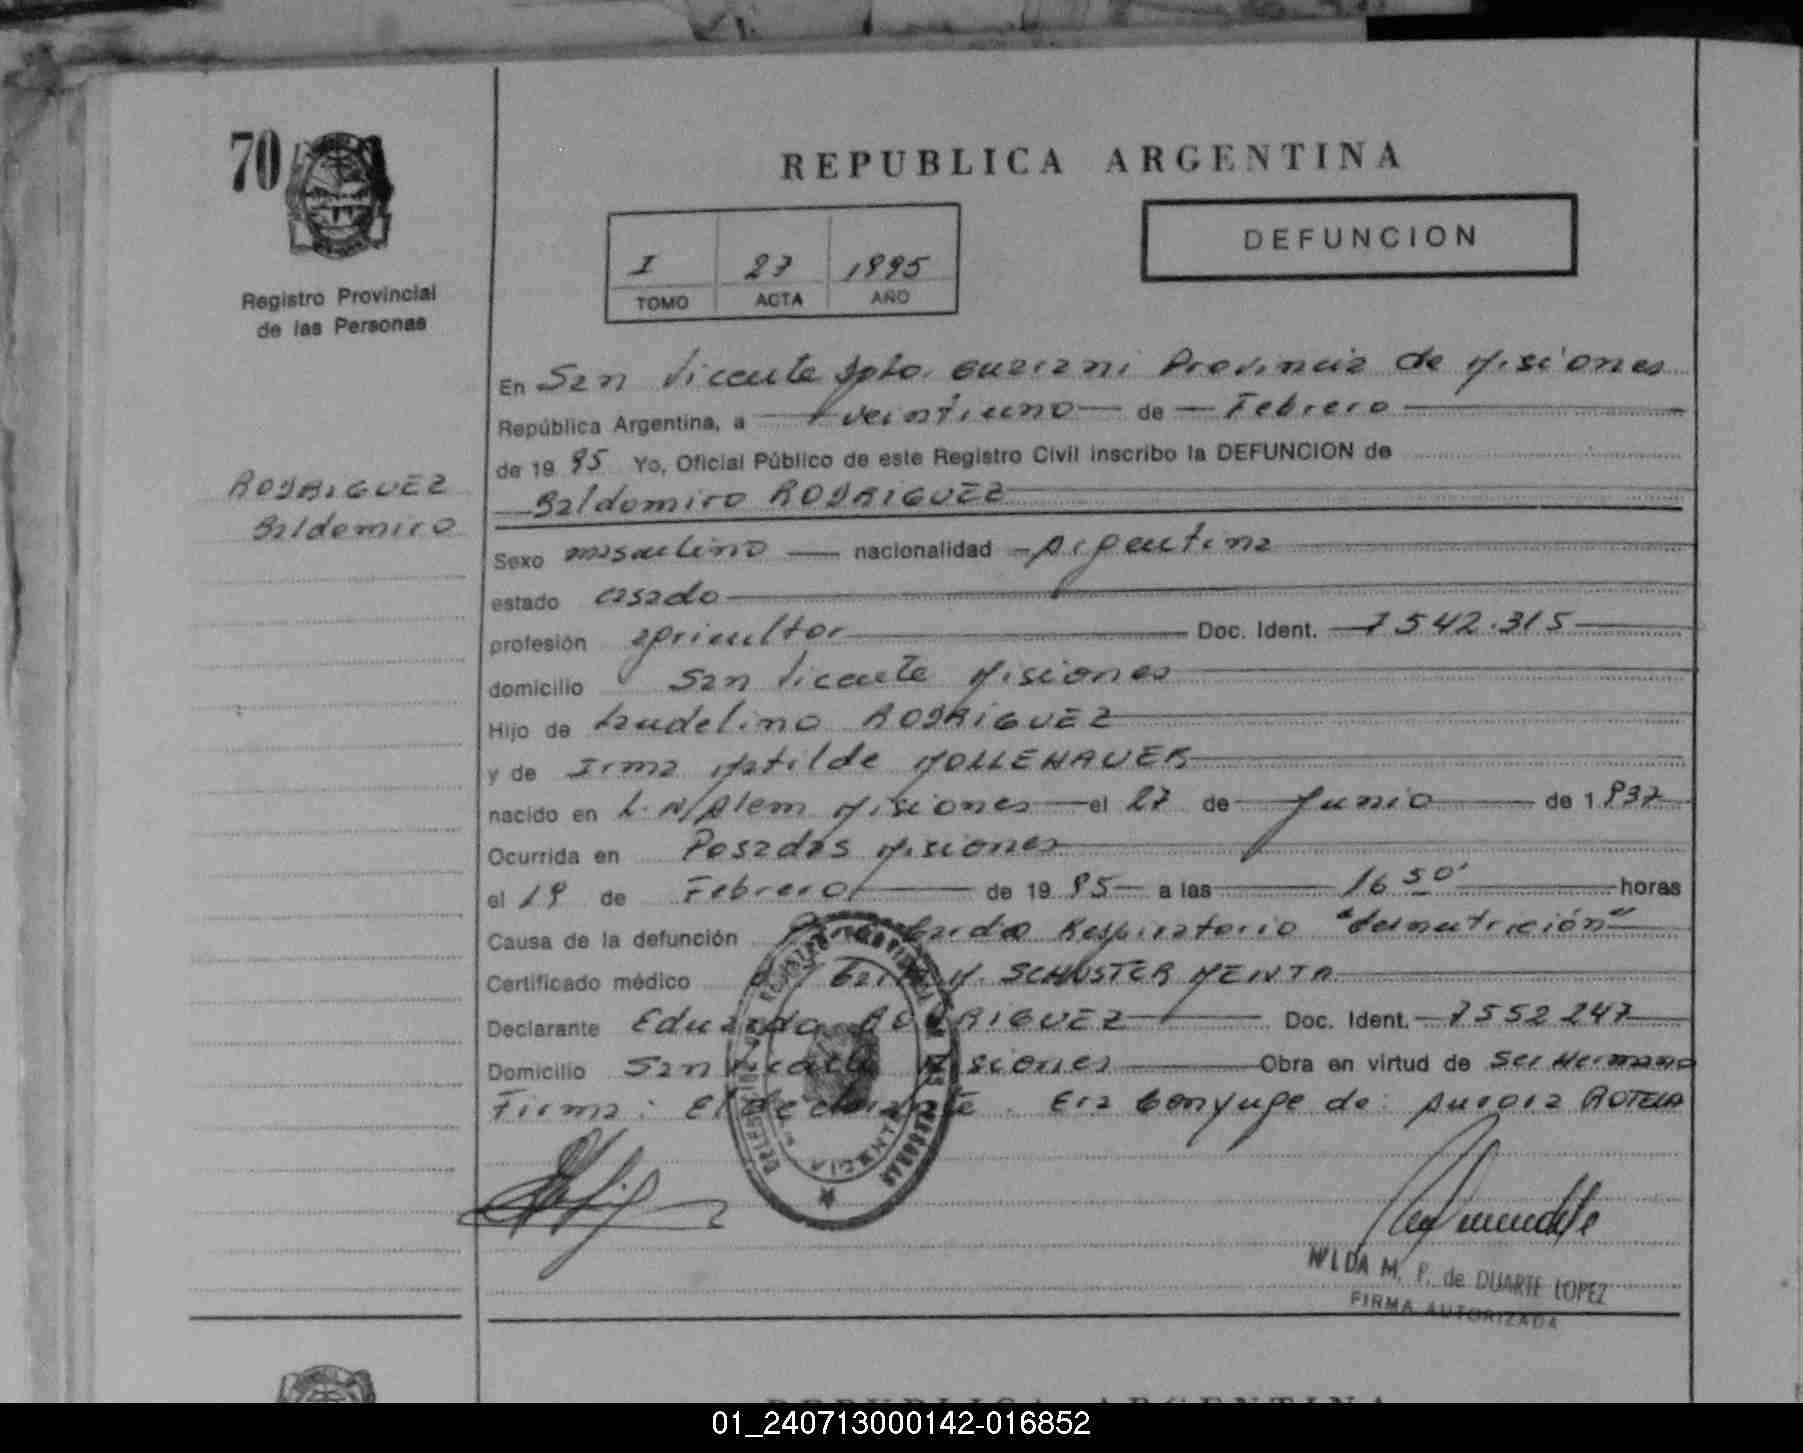 70
REPUBLICA ARGENTINA
DEFUNCION
I 27 1995
TOMO ACTA AÑO
Registro Provincial
de las Personas
En San Vicente Dpto. Guarani Provincia de Misiones
República Argentina, a veintiuno de Febrero
de 19 95 Yo, Oficial Público de este Registro Civil inscribo la DEFUNCION de
RODRIGUEZ
Baldomiro
Baldomiro RODRIGUEZ
Sexo masculino nacionalidad Argentina
estado casado
profesión agricultor Doc. Ident. 7542.315
domicilio San Vicente Misiones
Hijo de Laudelino RODRIGUEZ
y de Irma Matilde MOLLENAUER
nacido en L. N/Alem Misiones el 27 de Junio de 1937
Ocurrida en Posadas Misiones
el 19 de Febrero de 1995 a las 16 50' horas
Causa de la defunción Paro Cardio Respiratorio "desnutrición"
Certificado médico M. SCHUSTER MEINTA
Declarante Eduardo RODRIGUEZ Doc. Ident. 7552247
Domicilio San Vicente Misiones Obra en virtud de ser Hermano
Firma: El declarante. Era Conyuge de: Aurora ROTELA
NILDA M. P. de DUARTE LOPEZ
FIRMA AUTORIZADA
REPUBLICA ARGENTINA
01_240713000142-016852